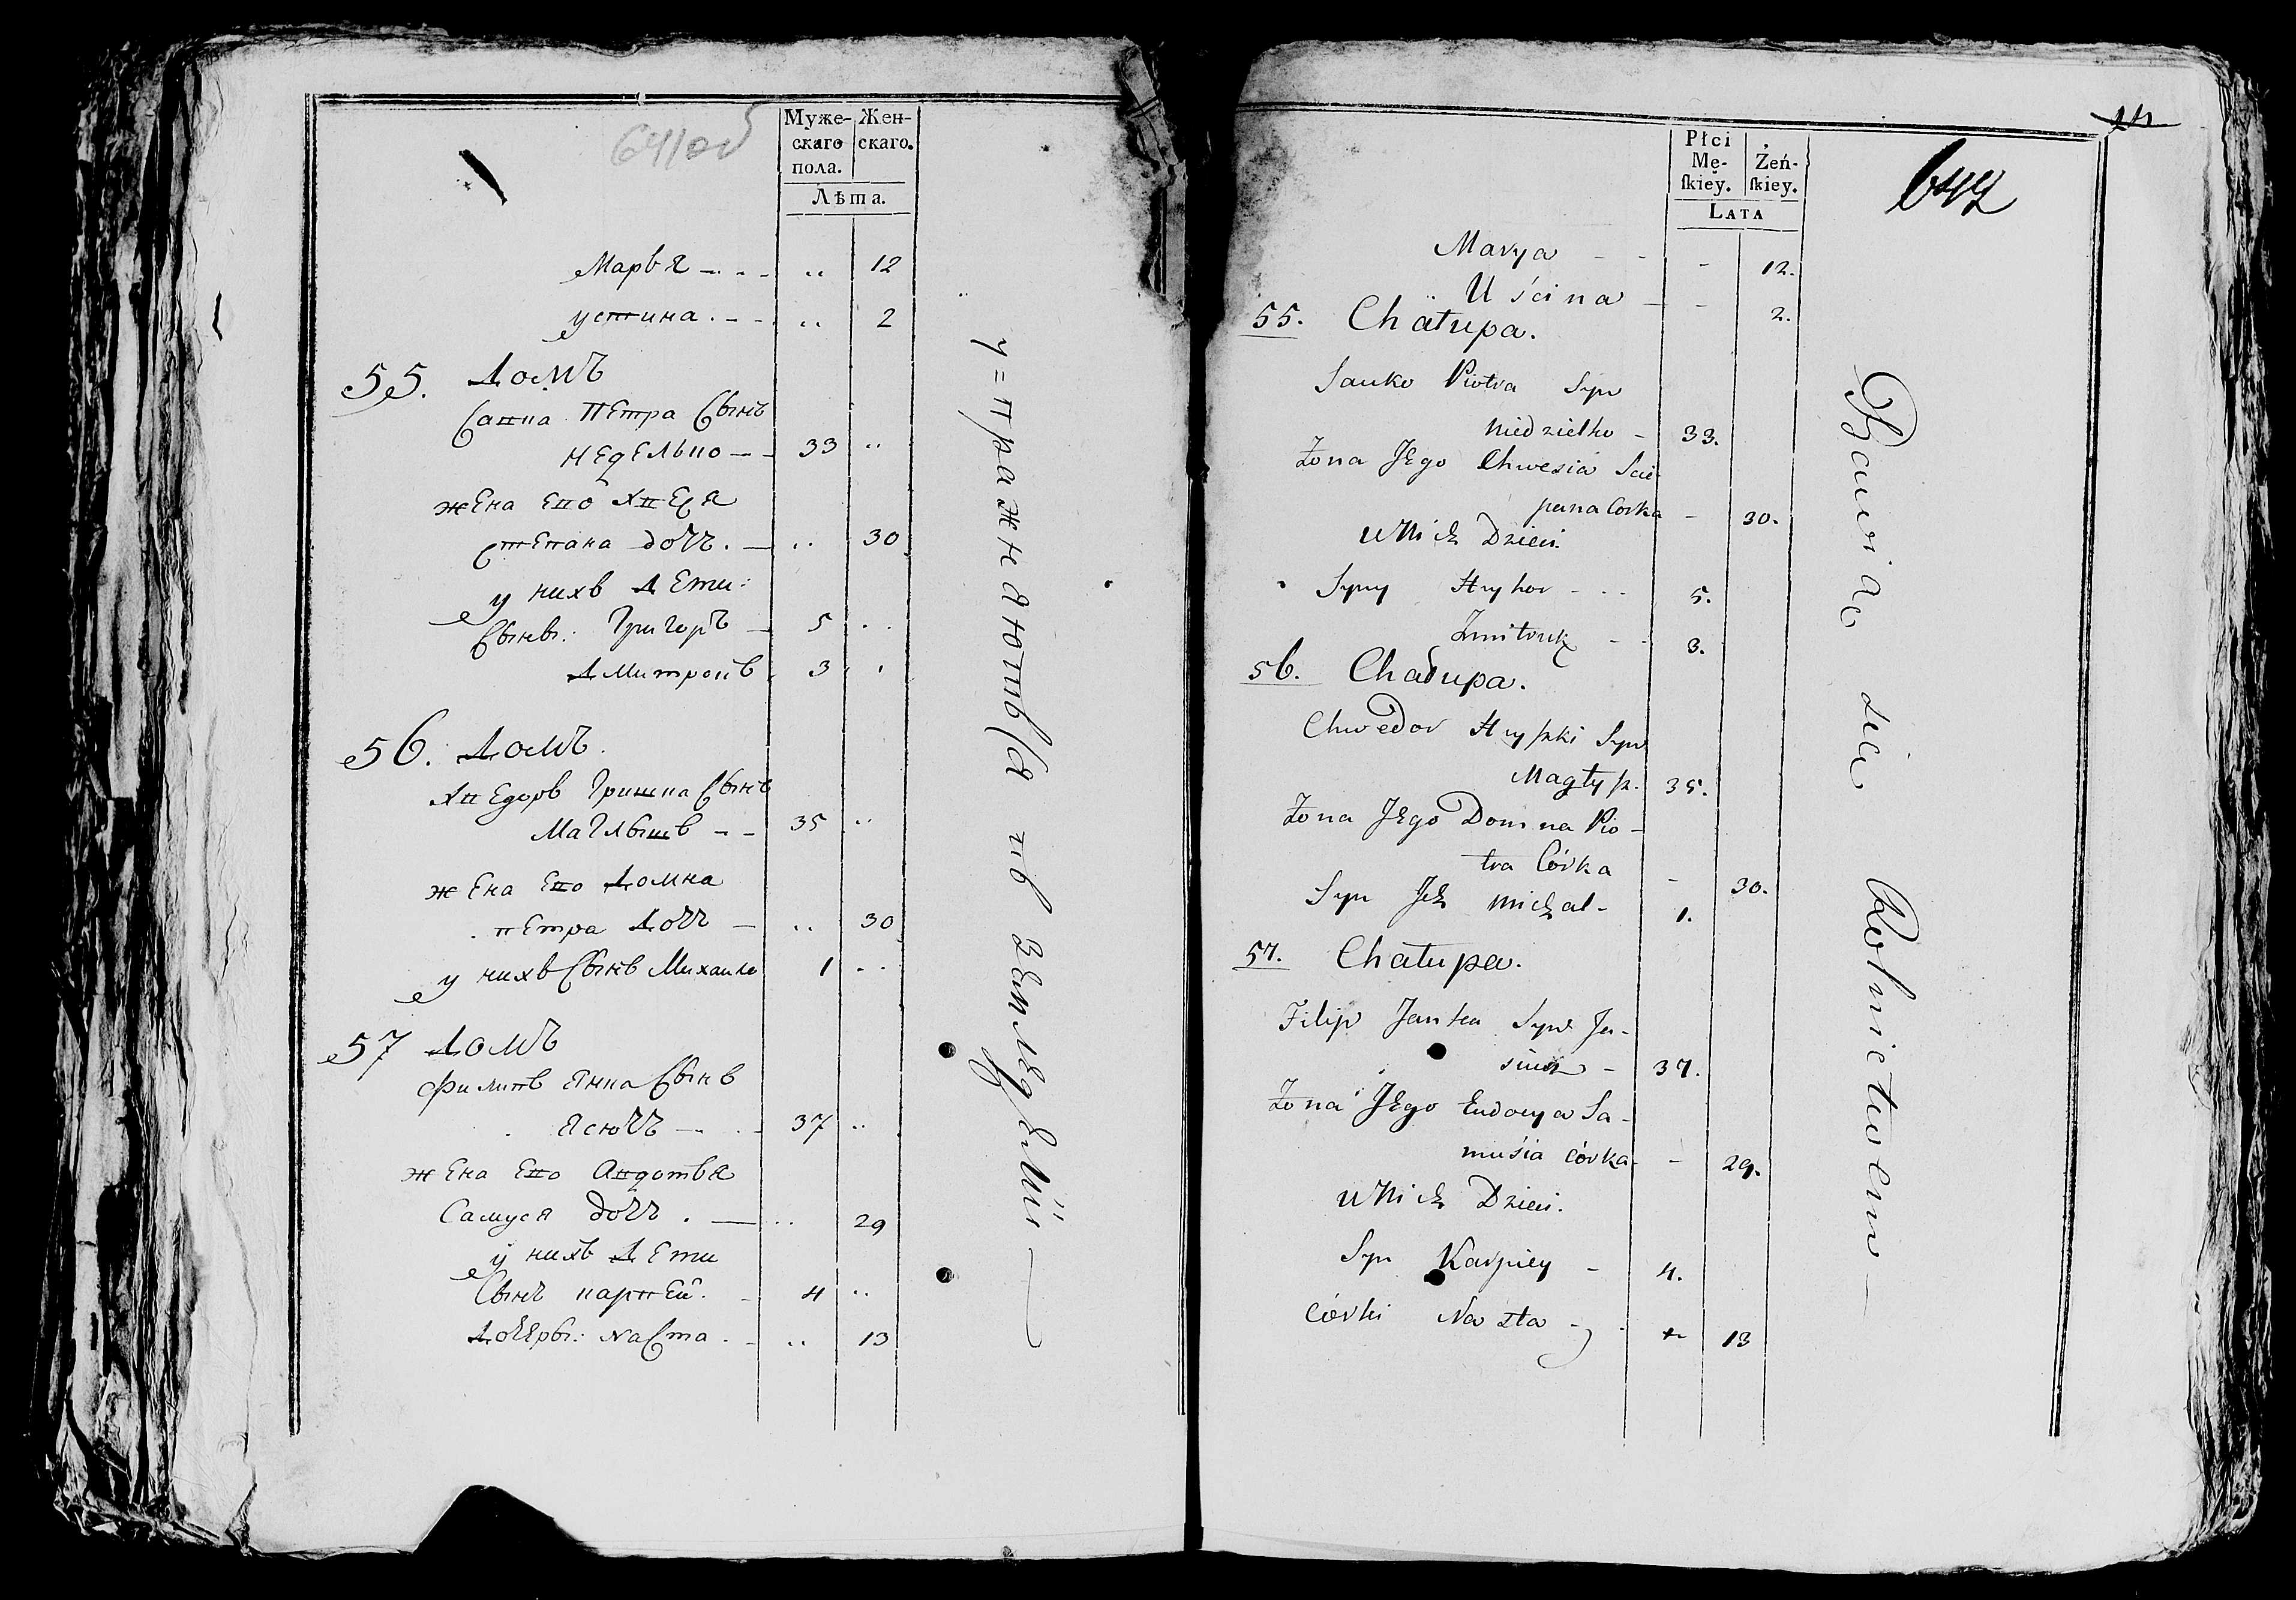 641об
Муже-
скаго
пола.
Жен-
скаго.
Лѣта.
Марья - - - .. 12
устина . - - .. 2
55. Домъ
Савка Петра Сынъ
недѣлько - - 33 ..
жена ево Хвеся
степана дочь. - .. 30
у нихъ дети:
Сынъ: Григоръ - 5 ..
дмитрокъ 3 .
56. Домъ.
Хведоръ Гришка Сынъ
Маглышъ - - 35 ..
жена ево домна
петра дочь - .. 30
у нихъ Сынъ Михалко 1 ..
57 Домъ
филипъ янка Сынъ
ясючъ - . - 37 ..
жена ево Авдотья
Самуся дочь . - .. 29
у нихъ дети
Сынъ карпей. - 4 ..
дочеры: наста . - .. 13
упражняются въ земледелiи
Płci
Mę-
ſkiey.
Żeń-
ſkiey.
LATA
642
Marya - - - 12.
Uścina - - 2.
55. Chałupa.
Sauko Piotra Syn
Niedzielko - 33.
Żona Jego Chwesia Scie-
pana Corka - 30.
u Nich Dzieci.
Syny Hryhor - - - 5.
Zmitruk - - 3.
56. Chałupa.
Chwedor Hryszki Syn
Magłysz. 35.
Żona Jego Domna Pio-
tra Córka - 30.
Syn Ich Michał - 1.
57. Chałupa.
Filip Janka Syn Ja-
siucz - 37.
Żona Jego Eudocya Sa-
musia córka - - 29.
u Nich Dzieci.
Syn Karpiey - 4.
córki Nasta - - 13
Bawia sie Rolnictwem